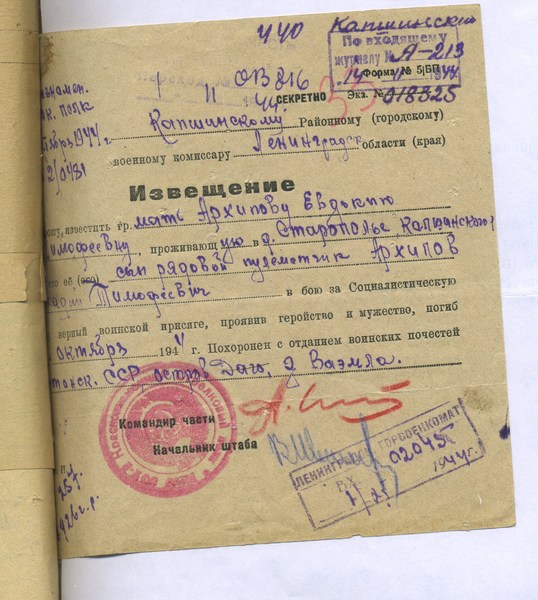 440 Капшинский
По входящему
журналу № А-213
14 11 1944
Форма № 5/БП
ОВ 816
СЕКРЕТНО
Экз. № 018325
Капшинскому Районному (городскому)
военному комиссару Ленинградск области (края)
Извещение
известить гр. мать Архипову Евдокию
имофеевну, проживающую в д. Старополье Капшинского
его её (его) сын рядовой пулеметчик Архипов
Тимофеевич в бою за Социалистическую
верный воинской присяге, проявив геройство и мужество, погиб
октябрь 1944 г. Похоронен с отданием воинских почестей
тонск. ССР, остров Даго, д Ваэмла.
Командир части
Начальник штаба
ЛЕНИНГРАД ГОРВОЕНКОМАТ
02045
1944г.
1926 г.р.